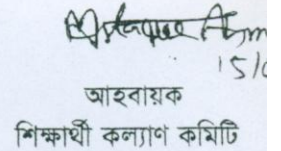 15/0
আহবায়ক
শিক্ষার্থী কল্যাণ কমিটি